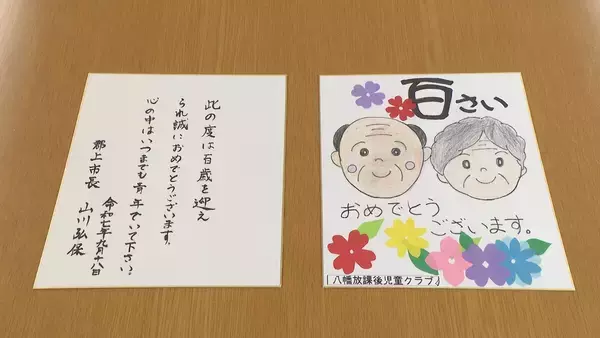 此の度は百歳を迎え
られ誠におめでとうございます。
心の中はいつまでも青年でいて下さい。
令和七年九月十八日
郡上市長 山川弘保
百さい
おめでとう
ございます。
「八幡放課後児童クラブ」